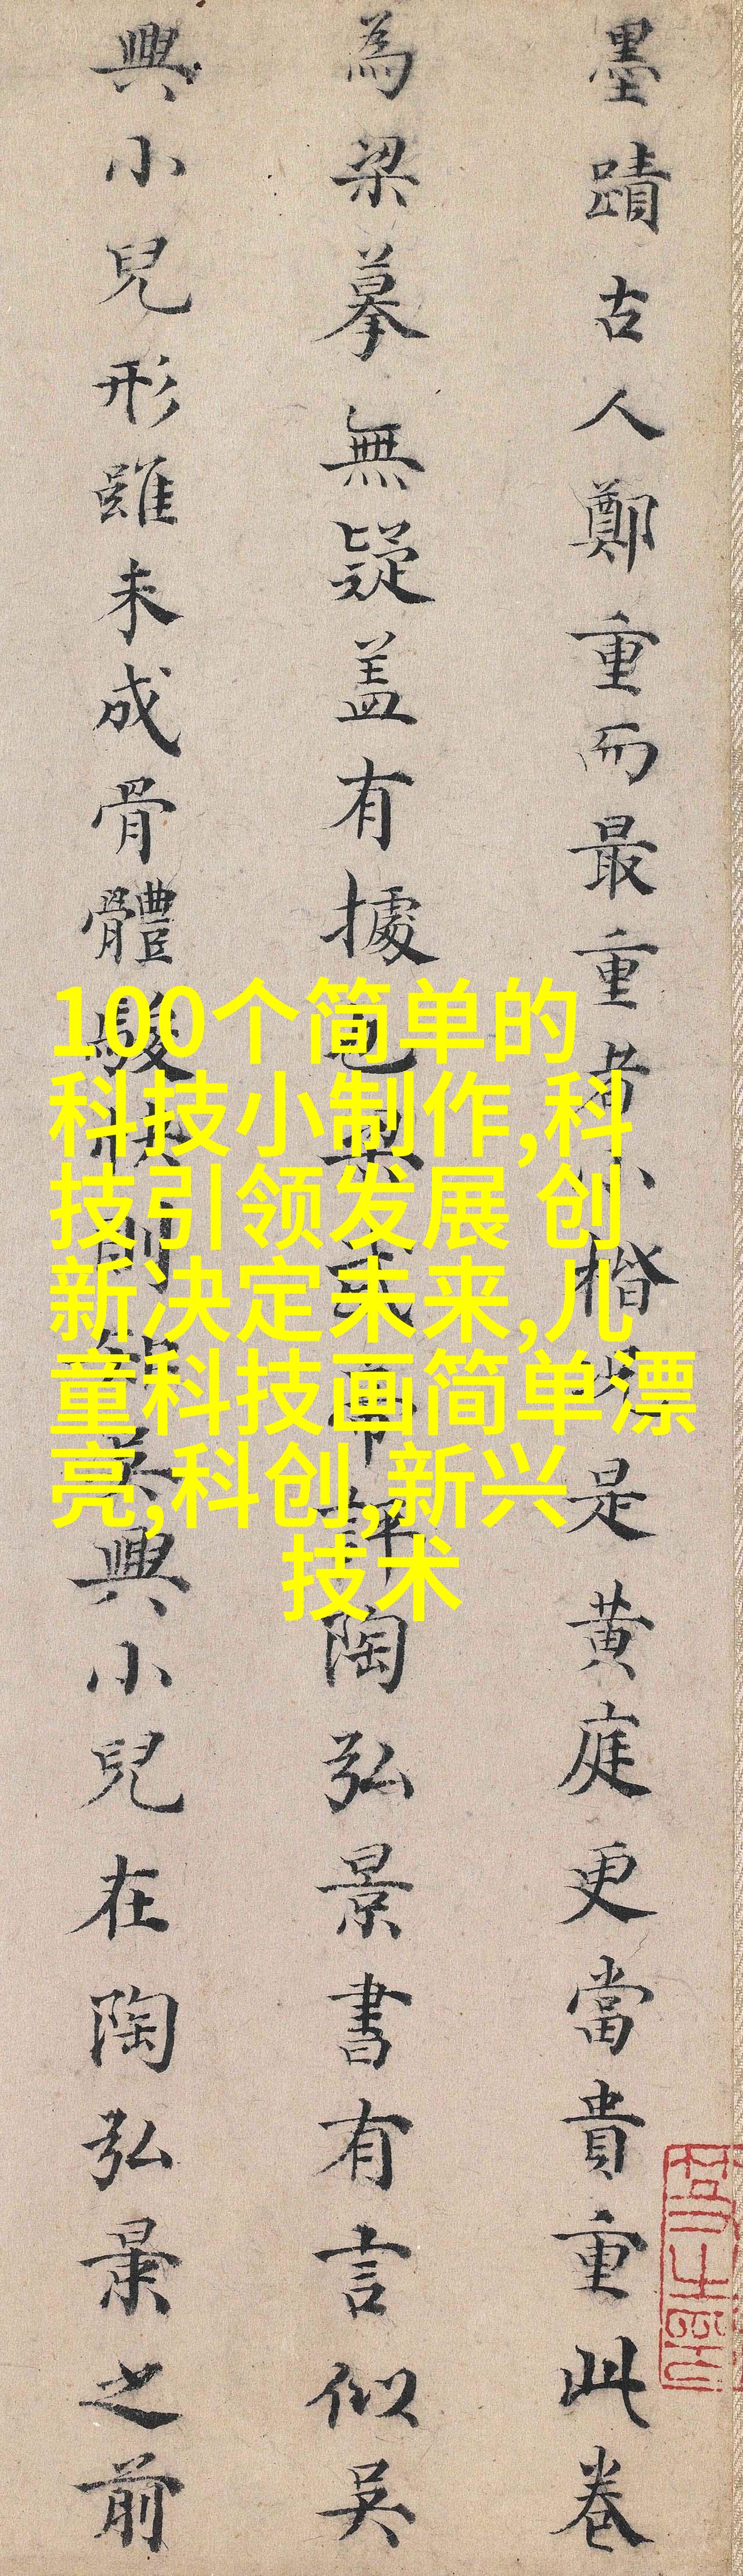 墨蹟古人鄭重而最重者小楷是黄庭更當貴重此卷
為梁摹無疑盖有據也梁武帝評陶弘景書有言似吴
興小兒形雖未成骨體駿快則吴興小兒在陶弘景之前
100个简单的
科技小制作,科
技引领发展 创
新决定未来,儿
童科技画简单漂
亮,科创,新兴
技术